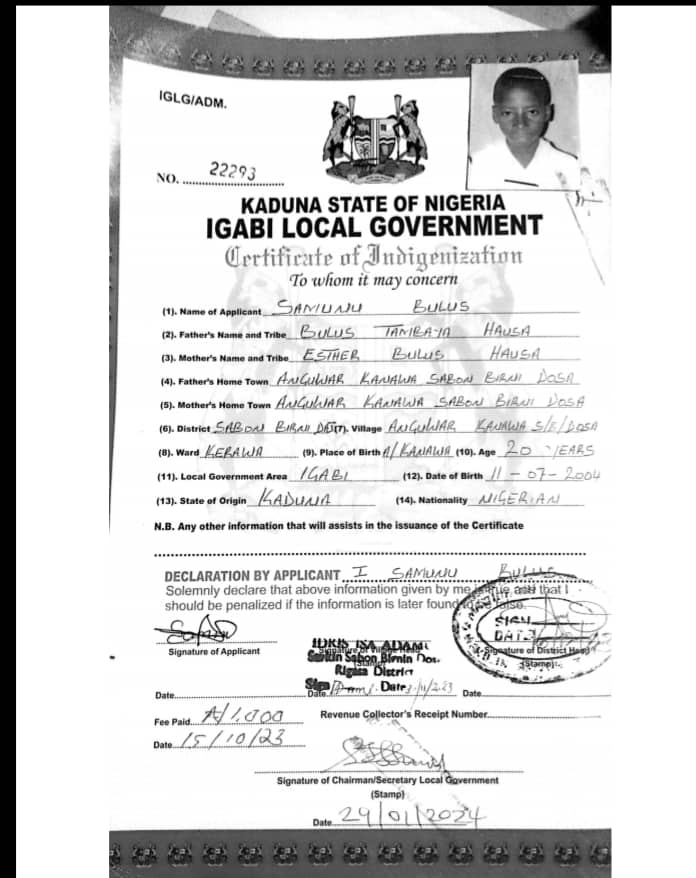 IGLG/ADM.
NO. 22293
KADUNA STATE OF NIGERIA
IGABI LOCAL GOVERNMENT
Certificate of Indigenization
To whom it may concern
(1). Name of Applicant SAMUNU BULUS
(2). Father's Name and Tribe BULUS TANIBAYA HAUSA
(3). Mother's Name and Tribe ESTHER BULUS HAUSA
(4). Father's Home Town ANGUWAR KANAWA SABON BIRNI DOSA
(5). Mother's Home Town ANGUWAR KANAWA SABON BIRNI DOSA
(6). District SABON BIRNI (7). Village ANGUWAR KANAWA S/B/DOSA
(8). Ward KERAWA (9). Place of Birth A/KANAWA (10). Age 20 YEARS
(11). Local Government Area IGABI (12). Date of Birth 11-07-2004
(13). State of Origin KADUNA (14). Nationality NIGERIAN
N.B. Any other information that will assists in the issuance of the Certificate
DECLARATION BY APPLICANT I SAMUNU BULUS
Solemnly declare that above information given by me is true and that I
should be penalized if the information is later found to be false.
SIGN
DATE
Signature of Applicant
IDRIS ISA ADAMU
Signature of Village Head
Sarkin Sabon Birnin Dos.
(Stamp)
Rigasa District
Signature of District Head
(Stamp)
Sign Date
Date Date Date
Fee Paid N1,000 Revenue Collector's Receipt Number
Date 15/10/23
Signature of Chairman/Secretary Local Government
(Stamp)
Date 29/01/2024